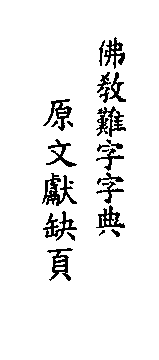 佛教難字字典
原文獻缺頁